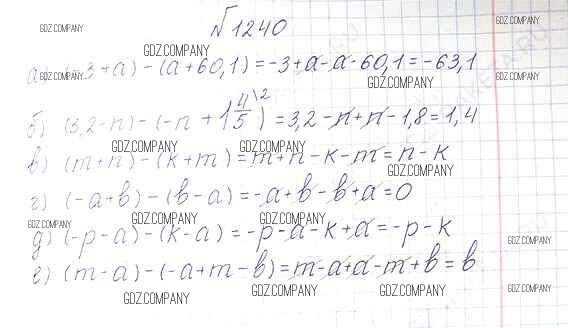 №1240
GDZ.COMPANY
GDZ.COMPANY
а) (-3+a)-(a+60,1)=-3+a-a-60,1=-63,1
GDZ.COMPANY GDZ.COMPANY GDZ.COMPANY
б) (3,2-n)-(-n+1 4/5 \2)=3,2-n+n-1,8=1,4
GDZ.COMPANY GDZ.COMPANY GDZ.COMPANY
в) (m+n)-(k+m)=m+n-k-m=n-k
GDZ.COMPANY
г) (-a+b)-(b-a)=-a+b-b+a=0
GDZ.COMPANY GDZ.COMPANY GDZ.COMPANY
д) (-p-a)-(k-a)=-p-a-k+a=-p-k
GDZ.COMPANY
е) (m-a)-(-a+m-b)=m-a+a-m+b=b
GDZ.COMPANY GDZ.COMPANY GDZ.COMPANY GDZ.COMPANY